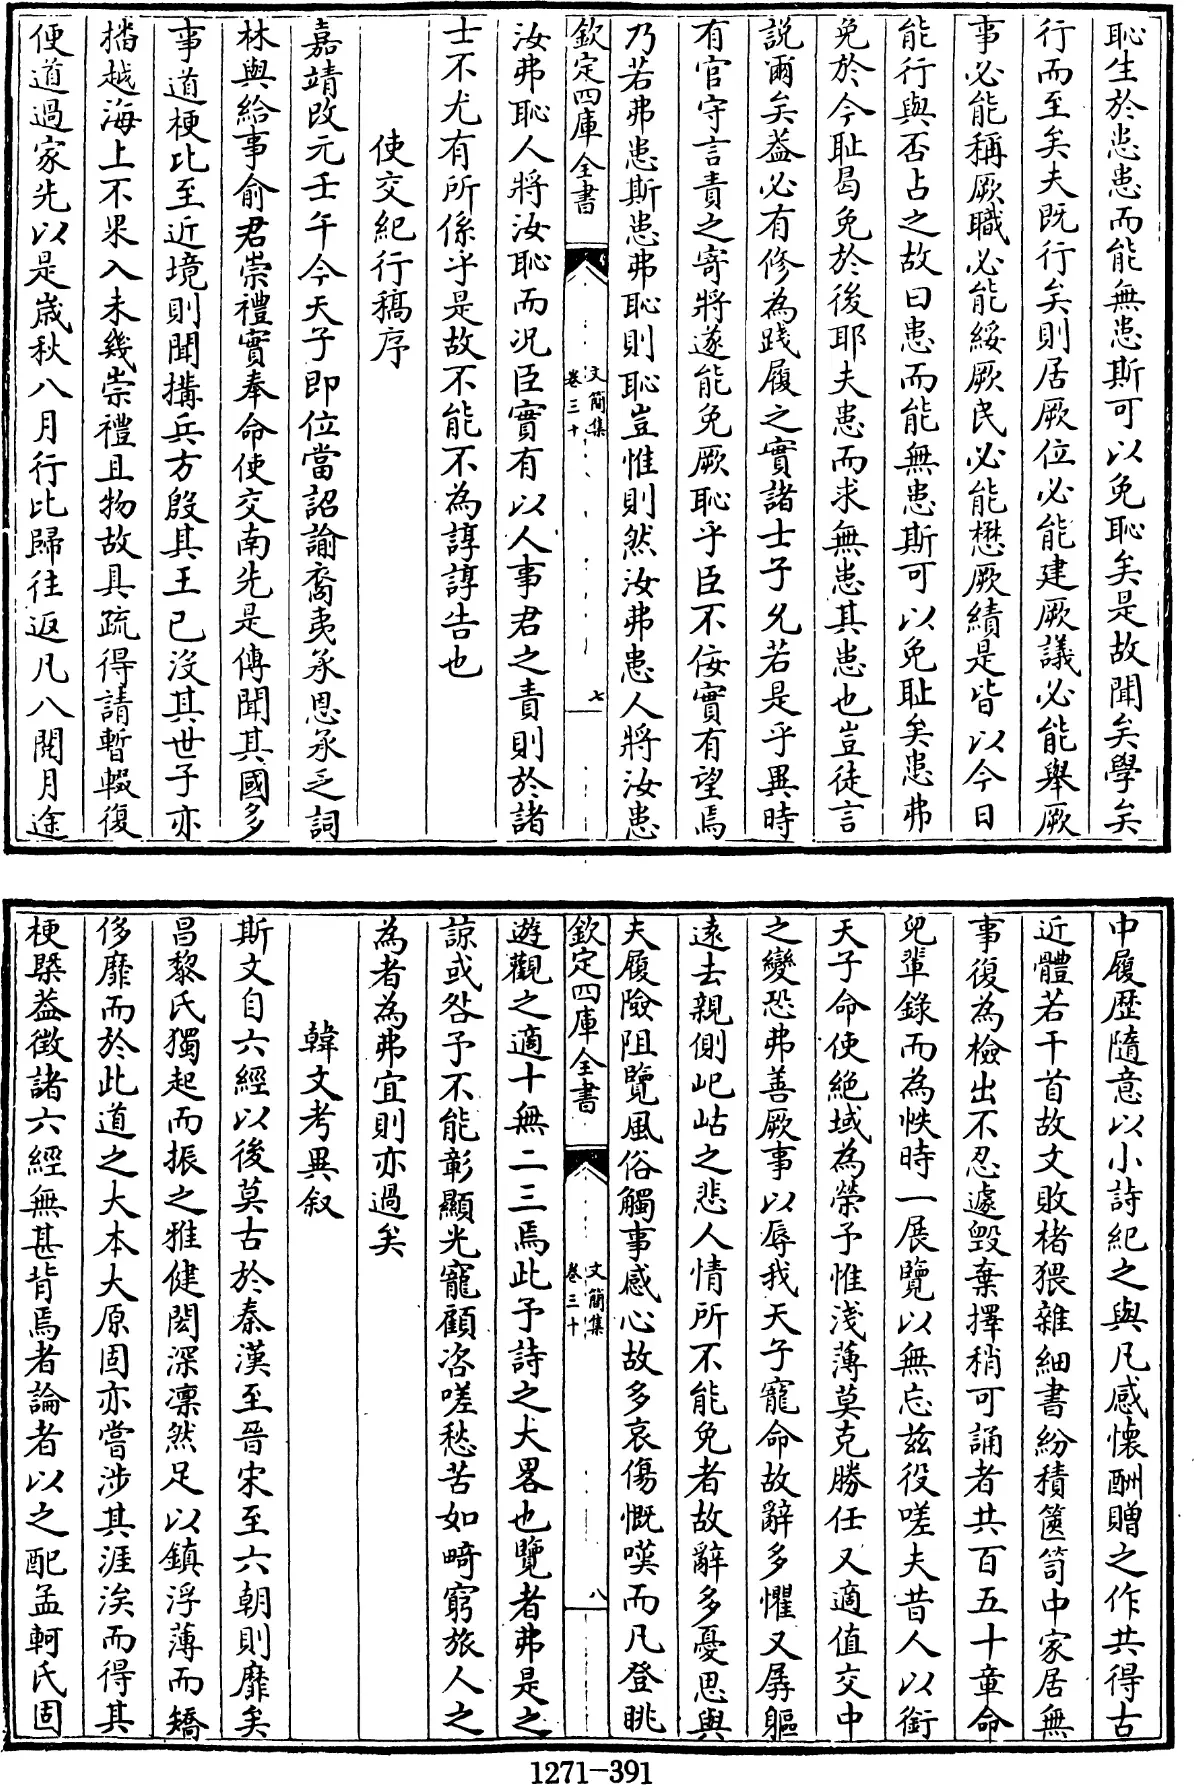 恥生於患患而能無患斯可以免恥矣是故聞矣學矣
行而至矣夫既行矣則居厥位必能建厥議必能舉厥
事必能稱厥職必能綏厥民必能懋厥績是皆以今日
能行與否占之故曰患而能無患斯可以免耻矣患弗
免於今耻曷免於後耶夫患而求無患其患也豈徒言
説爾矣葢必有修為踐履之實諸士子允若是乎異時
有官守言責之寄將遂能免厥恥乎臣不佞實有望焉
乃若弗患斯患弗恥則恥豈惟則然汝弗患人將汝患
欽定四庫全書
文簡集
卷三十
七
汝弗恥人將汝恥而況臣實有以人事君之責則於諸
士不尤有所係乎是故不能不為諄諄告也
使交紀行稿序
嘉靖改元壬午今天子即位當詔諭裔夷承恩承乏詞
林與給事俞君崇禮實奉命使交南先是傳聞其國多
事道梗比至近境則聞搆兵方殷其王已沒其世子亦
播越海上不果入未幾崇禮且物故具疏得請暫輟復
便道過家先以是歲秋八月行比歸往返凡八閱月途
中履歴隨意以小詩紀之與凡感懷酬贈之作共得古
近體若干首故文敗楮猥雜細書紛積篋笥中家居無
事復為檢出不忍遽毀棄擇稍可誦者共百五十章命
兒輩錄而為帙時一展覽以無忘兹役嗟夫昔人以銜
天子命使絶域為榮予惟淺薄莫克勝任又適值交中
之變恐弗善厥事以辱我天子寵命故辭多懼又孱軀
遠去親側屺岵之悲人情所不能免者故辭多憂思與
夫履險阻覽風俗觸事感心故多哀傷慨嘆而凡登眺
欽定四庫全書
文簡集
卷三十
八
遊觀之適十無二三焉此予詩之大畧也覽者弗是之
諒或咎予不能彰顯光寵顧咨嗟愁苦如畸窮旅人之
為者為弗宜則亦過矣
韓文考異叙
斯文自六經以後莫古於秦漢至晉宋至六朝則靡矣
昌黎氏獨起而振之雅健閎深凛然足以鎮浮薄而矯
侈靡而於此道之大本大原固亦嘗涉其涯涘而得其
梗槩葢徴諸六經無甚背焉者論者以之配孟軻氏固
1271-391